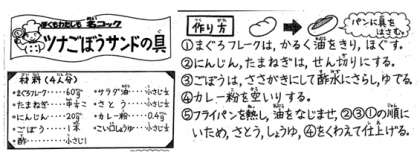 ぼくもわたしも 名コック
ツナごぼうサンドの具
材料(4人分)
・まぐろフレーク……60g
・たまねぎ
・にんじん……20g
・ごぼう……1本
・酢……小さじ1
・サラダ油……小さじ
・さとう……小さじ
・カレー粉……0.4g
・こい口しょうゆ…小さじ
作り方
パンに具をはさむ。
①まぐろフレークは、かるく油をきり、ほぐす。
②にんじん、たまねぎは、せん切りにする。
③ごぼうは、ささがきにして酢水にさらし、ゆでる。
④カレー粉を空いりする。
⑤フライパンを熱し、油をなじませ、②③①の順に
いため、さとう、しょうゆ、④をくわえて仕上げる。